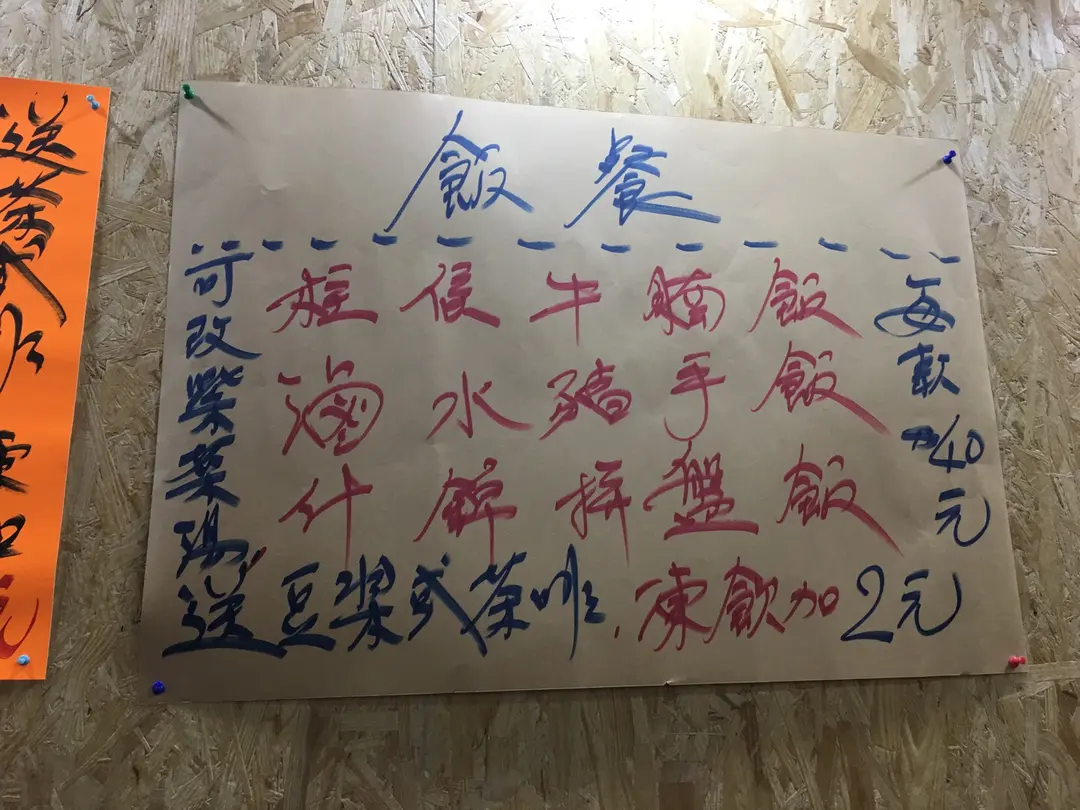 飯餐
柱侯牛腩飯
滷水豬手飯
什錦拼盤飯
每款40元
可改紫菜湯,
送豆漿或茶啡,凍飲加2元
送茶或啡